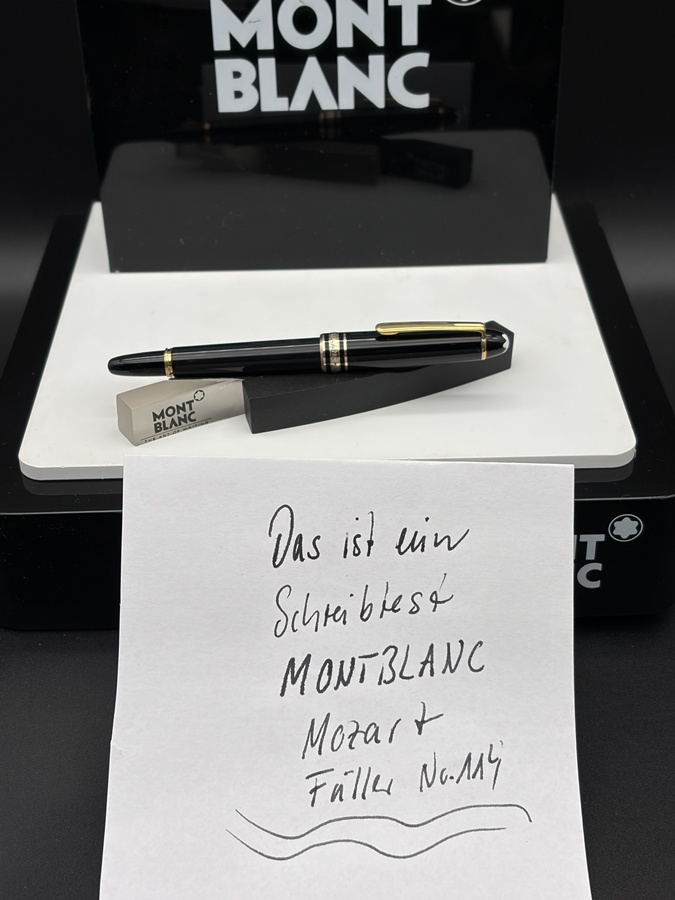 MONT
BLANC
MONT
BLANC
THE ART OF WRITING
NT
NC
Das ist ein
Schreibtest
MONTBLANC
Mozart
Füller No. 114